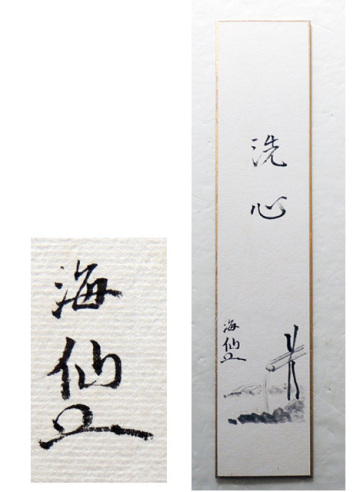 洗心
海仙
海仙